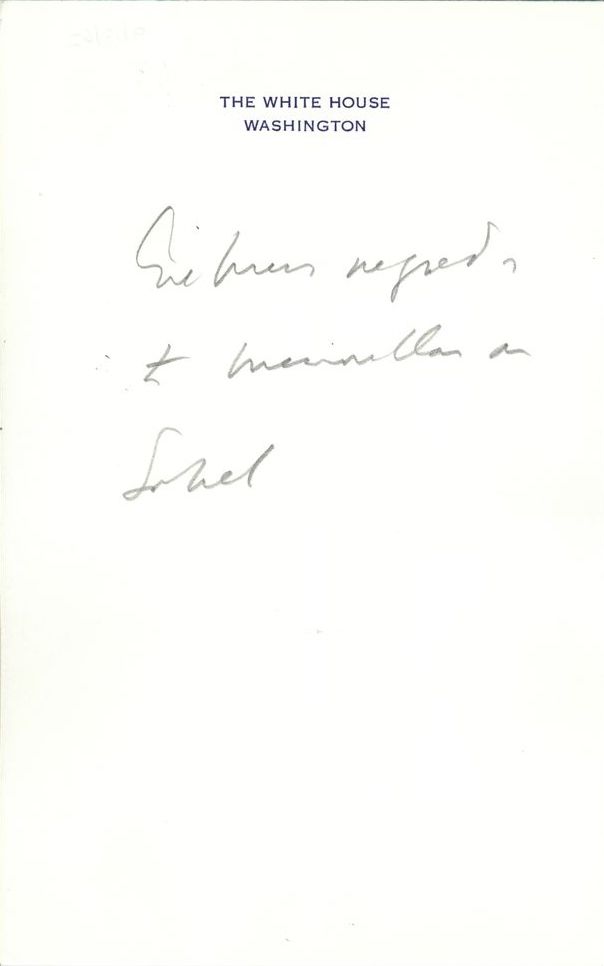 THE WHITE HOUSE
WASHINGTON
Give him regrets
to Macmillan on
Sobel